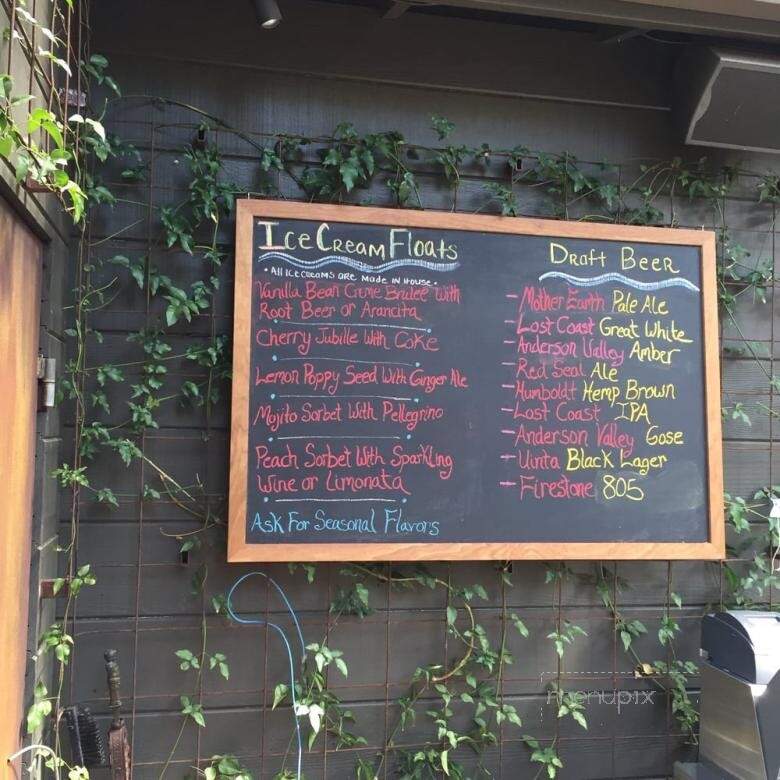 Ice Cream Floats
• All Ice Creams are Made in House •
Vanilla Bean Crme Brulee With
Root Beer or Arancita
Cherry Jubille With Coke
Lemon Poppy Seed With Ginger Ale
Mojito Sorbet With Pellegrino
Peach Sorbet With Sparkling
Wine or Limonata
Ask For Seasonal Flavors
Draft Beer
- Mother Earth Pale Ale
- Lost Coast Great White
- Anderson Valley Amber
- Red Seal Ale
- Humboldt Hemp Brown
- Lost Coast IPA
- Anderson Valley Gose
- Uinta Black Lager
- Firestone 805
menupix